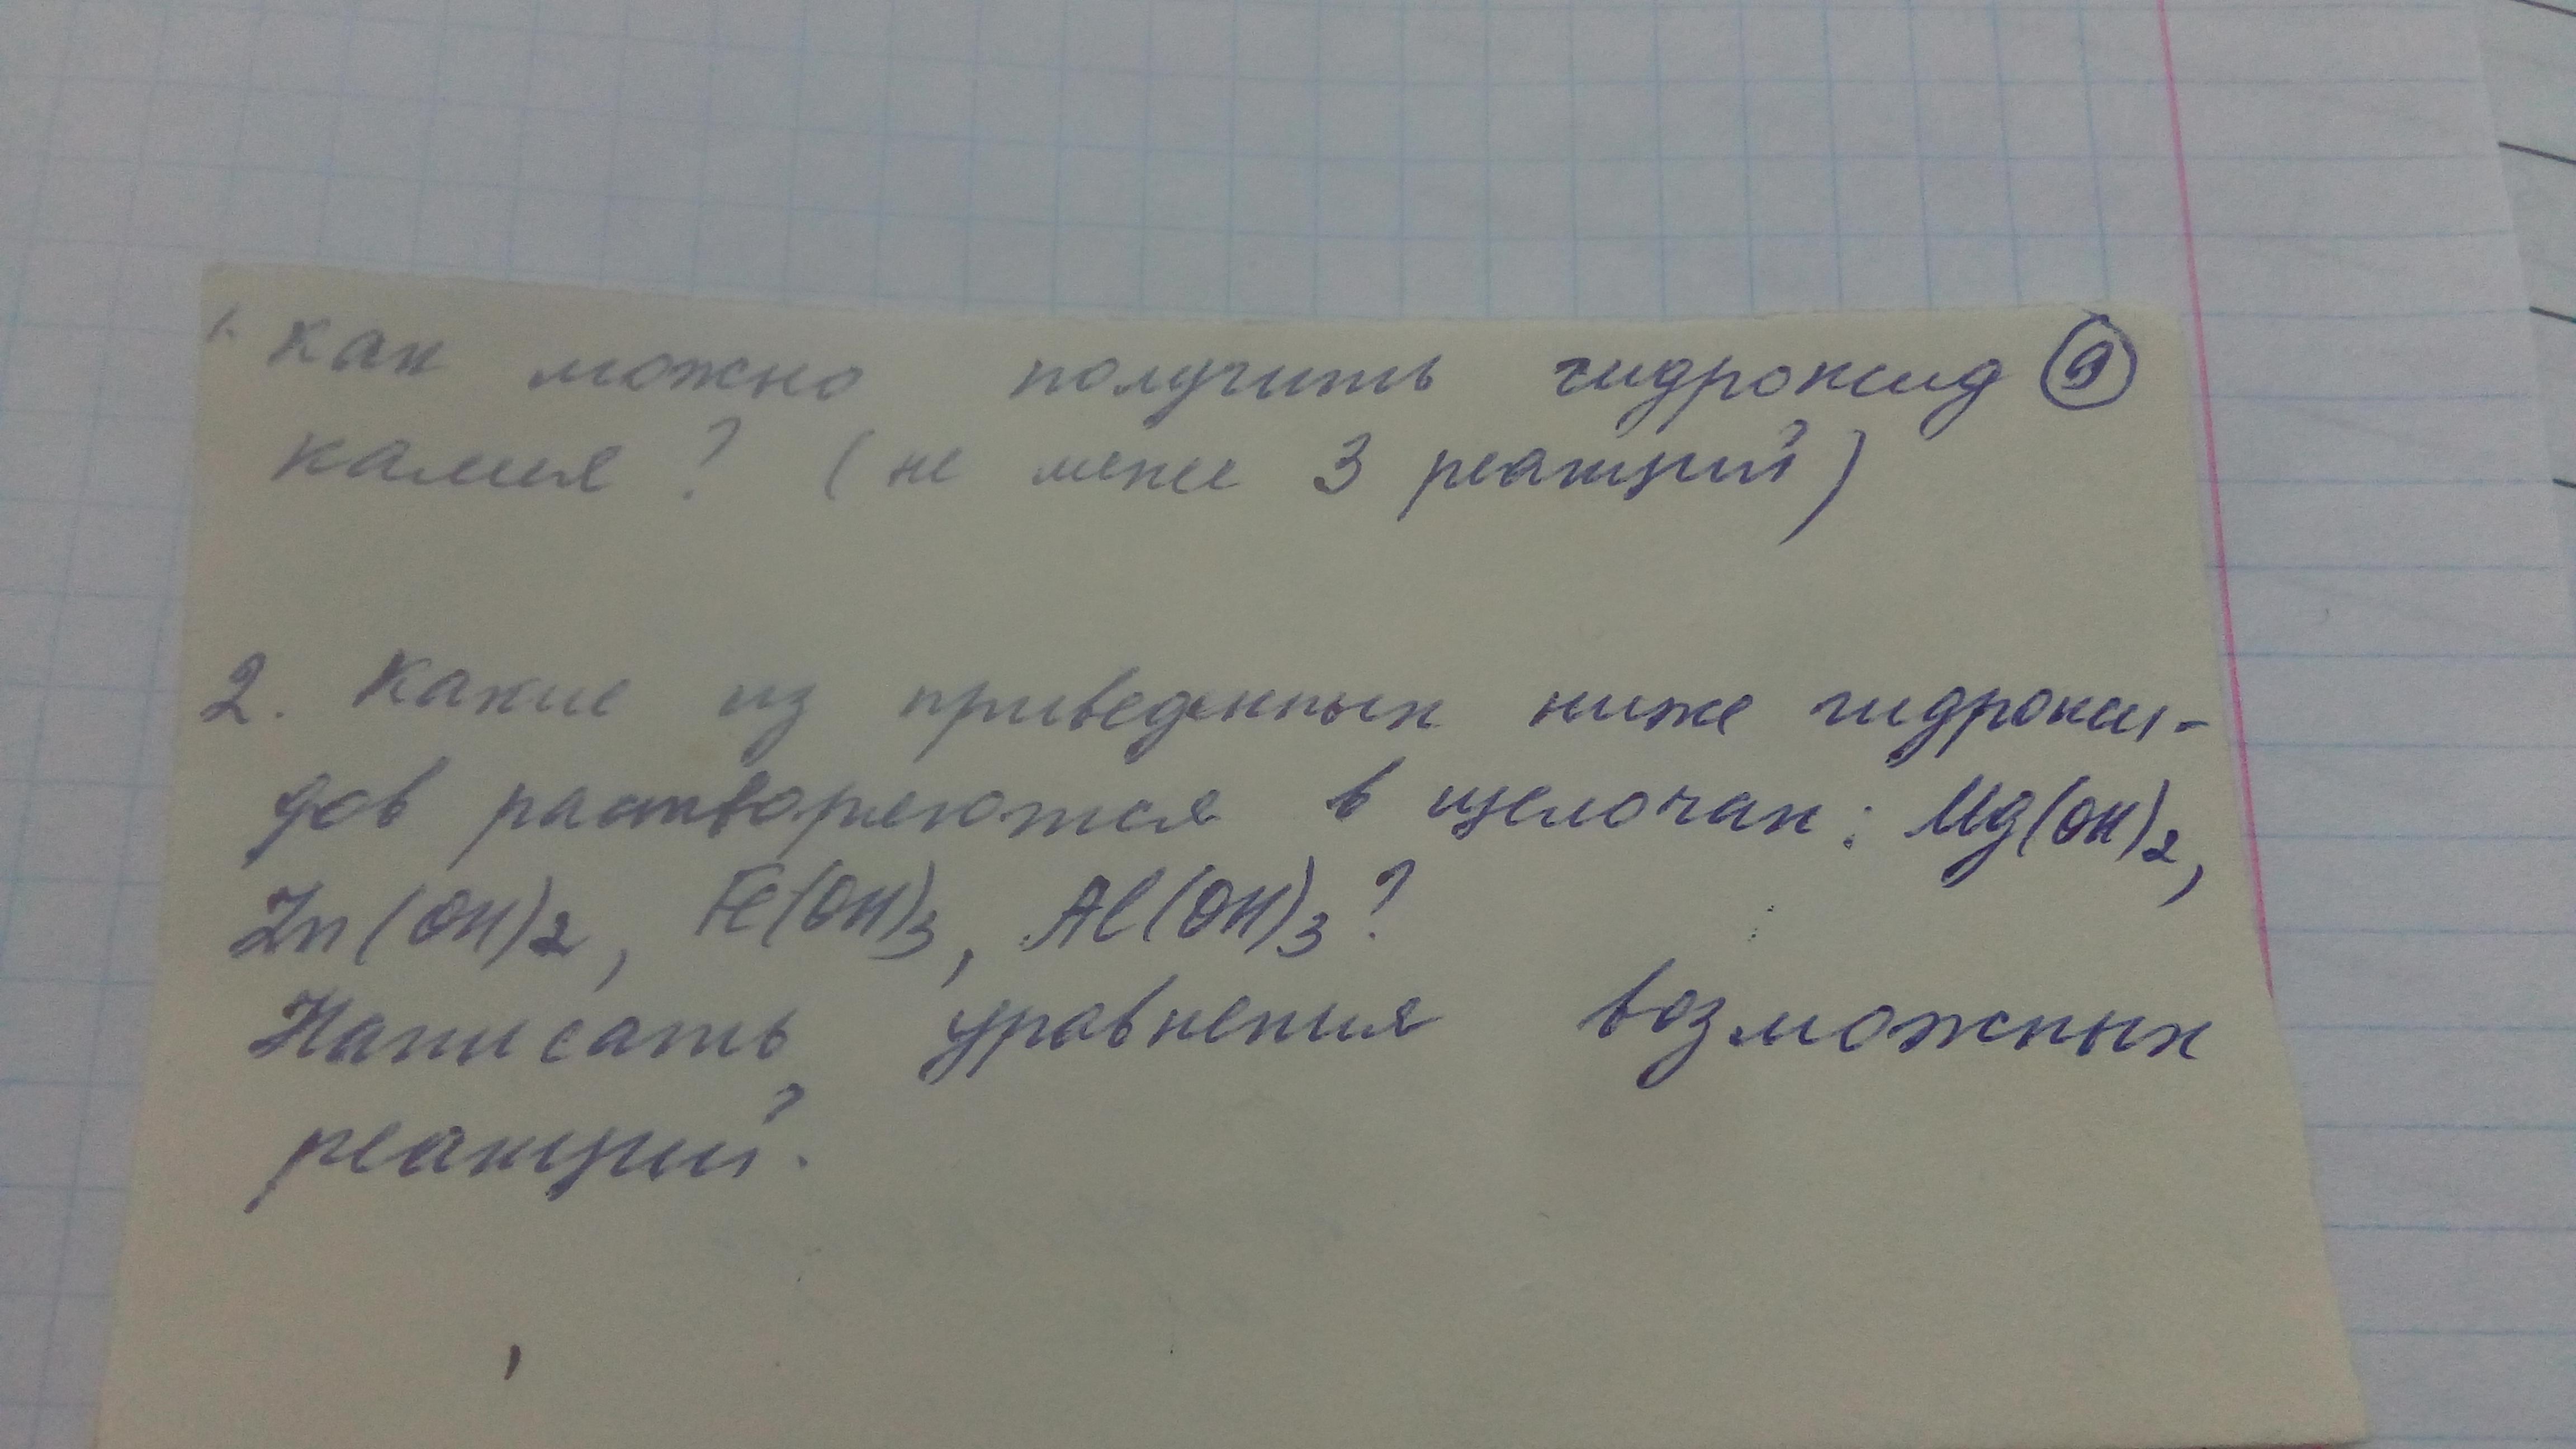 1. Как можно получить гидроксид 9
калия? (не менее 3 реакций)
2. Какие из приведенных ниже гидрокси-
дов растворяются в щелочах: Mg(OH)2,
Zn(OH)2, Fe(OH)3, Al(OH)3?
Написать уравнения возможных
реакций.